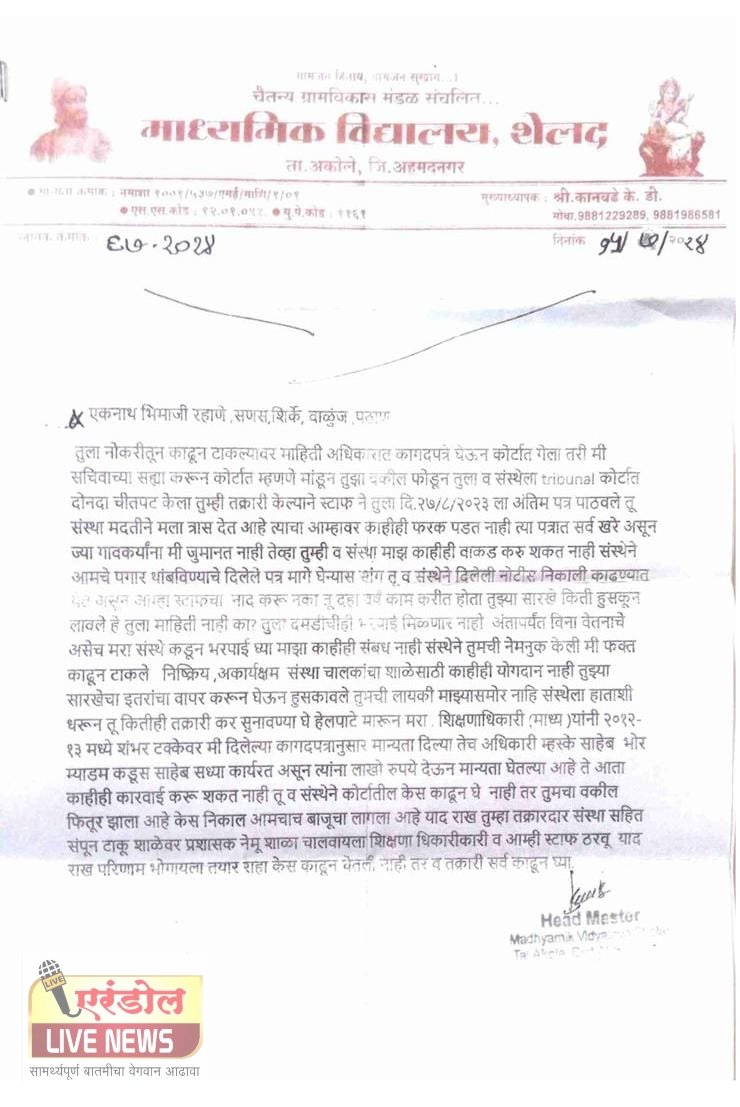 ग्रामजन हिताय, ग्रामजन सुखाय...!
चैतन्य ग्रामविकास मंडळ संचलित...
माध्यमिक विद्यालय, शेलद
ता.अकोले, जि.अहमदनगर
मुख्याध्यापक : श्री.कानवडे के. डी.
मोबा.9881229289, 9881986581
जावक क्रमांक ६७-२०२४
दिनांक १५/ ७/२०२४
एकनाथ भिमाजी रहाणे ,सणस,शिर्के, वाळुंज ,पठाण
तुला नोकरीतून काढून टाकल्यावर माहिती अधिकारात कागदपत्रे घेऊन कोर्टात गेला तरी मी
सचिवाच्या सह्या करून कोर्टात म्हणणे मांडून तुझा वकील फोडून तुला व संस्थेला tribunal कोर्टात
दोनदा चीतपट केला तुम्ही तक्रारी केल्याने स्टाफ ने तुला दि.२७/८/२०२३ ला अंतिम पत्र पाठवले तू
संस्था मदतीने मला त्रास देत आहे त्याचा आम्हावर काहीही फरक पडत नाही त्या पत्रात सर्व खरे असून
ज्या गावकर्यांना मी जुमानत नाही तेव्हा तुम्ही व संस्था माझ काहीही वाकड करु शकत नाही संस्थेने
आमचे पगार थांबविण्याचे दिलेले पत्र मागे घेन्यास सांग तू व संस्थेने दिलेली नोटीस निकाली काढण्यात
येत असून आम्हा स्टाफचा नाद करू नका तू दहा वर्ष काम करीत होता तुझ्या सारखे किती हुसकून
लावले हे तुला माहिती नाही का? तुला दमडीचीही भरपाई मिळणार नाही अंतापर्यंत विना वेतनाचे
असेच मरा संस्थे कडून भरपाई घ्या माझा काहीही संबध नाही संस्थेने तुमची नेमनुक केली मी फक्त
काढून टाकले निष्क्रिय ,अकार्यक्षम संस्था चालकांचा शाळेसाठी काहीही योगदान नाही तुझ्या
सारखेचा इतरांचा वापर करून घेऊन हुसकावले तुमची लायकी माझ्यासमोर नाहि संस्थेला हाताशी
धरून तू कितीही तक्रारी कर सुनावण्या घे हेलपाटे मारून मरा . शिक्षणाधिकारी (माध्य )यांनी २०१२-
१३ मध्ये शंभर टक्केवर मी दिलेल्या कागदपत्रानुसार मान्यता दिल्या तेच अधिकारी म्हस्के साहेब भोर
म्याडम कडूस साहेब सध्या कार्यरत असून त्यांना लाखो रुपये देऊन मान्यता घेतल्या आहे ते आता
काहीही कारवाई करू शकत नाही तू व संस्थेने कोर्टातील केस काढून घे नाही तर तुमचा वकील
फितूर झाला आहे केस निकाल आमचाच बाजूचा लागला आहे याद राख तुम्हा तक्रारदार संस्था सहित
संपून टाकू शाळेवर प्रशासक नेमू शाळा चालवायला शिक्षणा धिकारीकारी व आम्ही स्टाफ ठरवू याद
राख परिणाम भोगायला तयार राहा केस काढून घेतली नाही तर व तक्रारी सर्व काढून घ्या.
Head Master
Madhyamik
एरंडोल
LIVE
LIVE NEWS
सामर्थ्यपूर्ण बातमीचा वेगवान आढावा